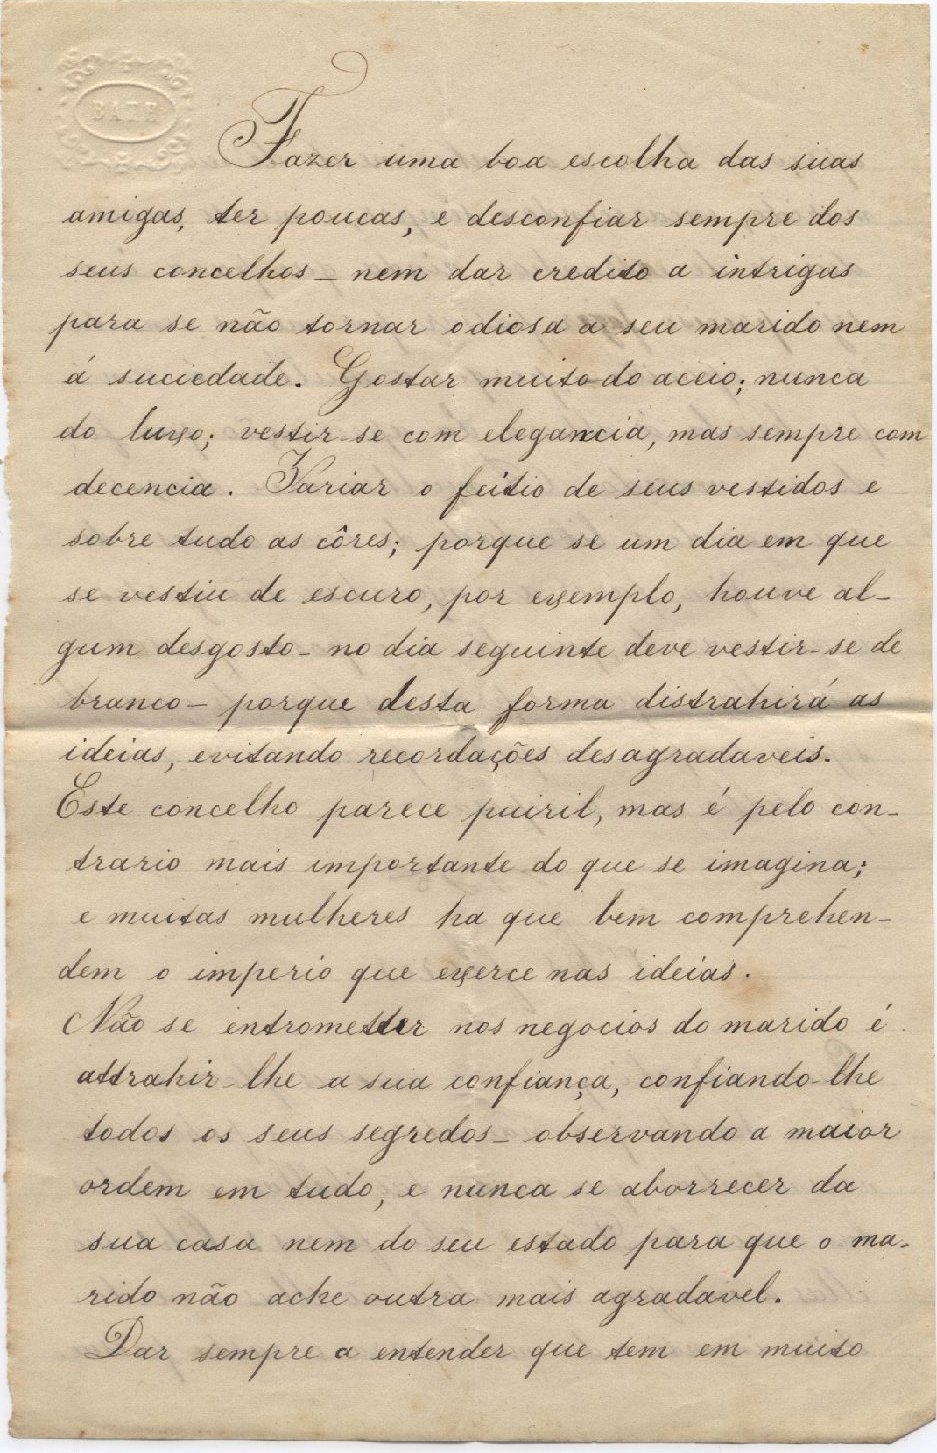 BATH
Fazer uma boa escolha das suas
amigas, ter poucas, e desconfiar sempre dos
seus concelhos_ nem dar credito a intrigas
para se não tornar odiosa a seu marido nem
á suciedade. Gostar muito do aceio; nunca
do luxo; vestir-se com elegancia, mas sempre com
decencia. Variar o feitio de seus vestidos e
sobre tudo as côres; porque se um dia em que
se vestiu de escuro, por exemplo, houve al-
gum desgosto_ no dia seguinte deve vestir-se de
branco_ porque desta forma distrahirá as
ideias, evitando recordações desagradaveis.
Este concelho parece puiril, mas é pelo con-
trario mais importante do que se imagina;
e muitas mulheres ha que bem comprehen-
dem o imperio que exerce nas ideias.
Não se entrometter nos negocios do marido é
attrahir-lhe a sua confiança, confiando-lhe
todos os seus segredos_ observando a maior
ordem em tudo, e nunca se aborrecer da
sua casa nem do seu estado para que o ma-
rido não ache outra mais agradavel.
Dar sempre a entender que tem em muito